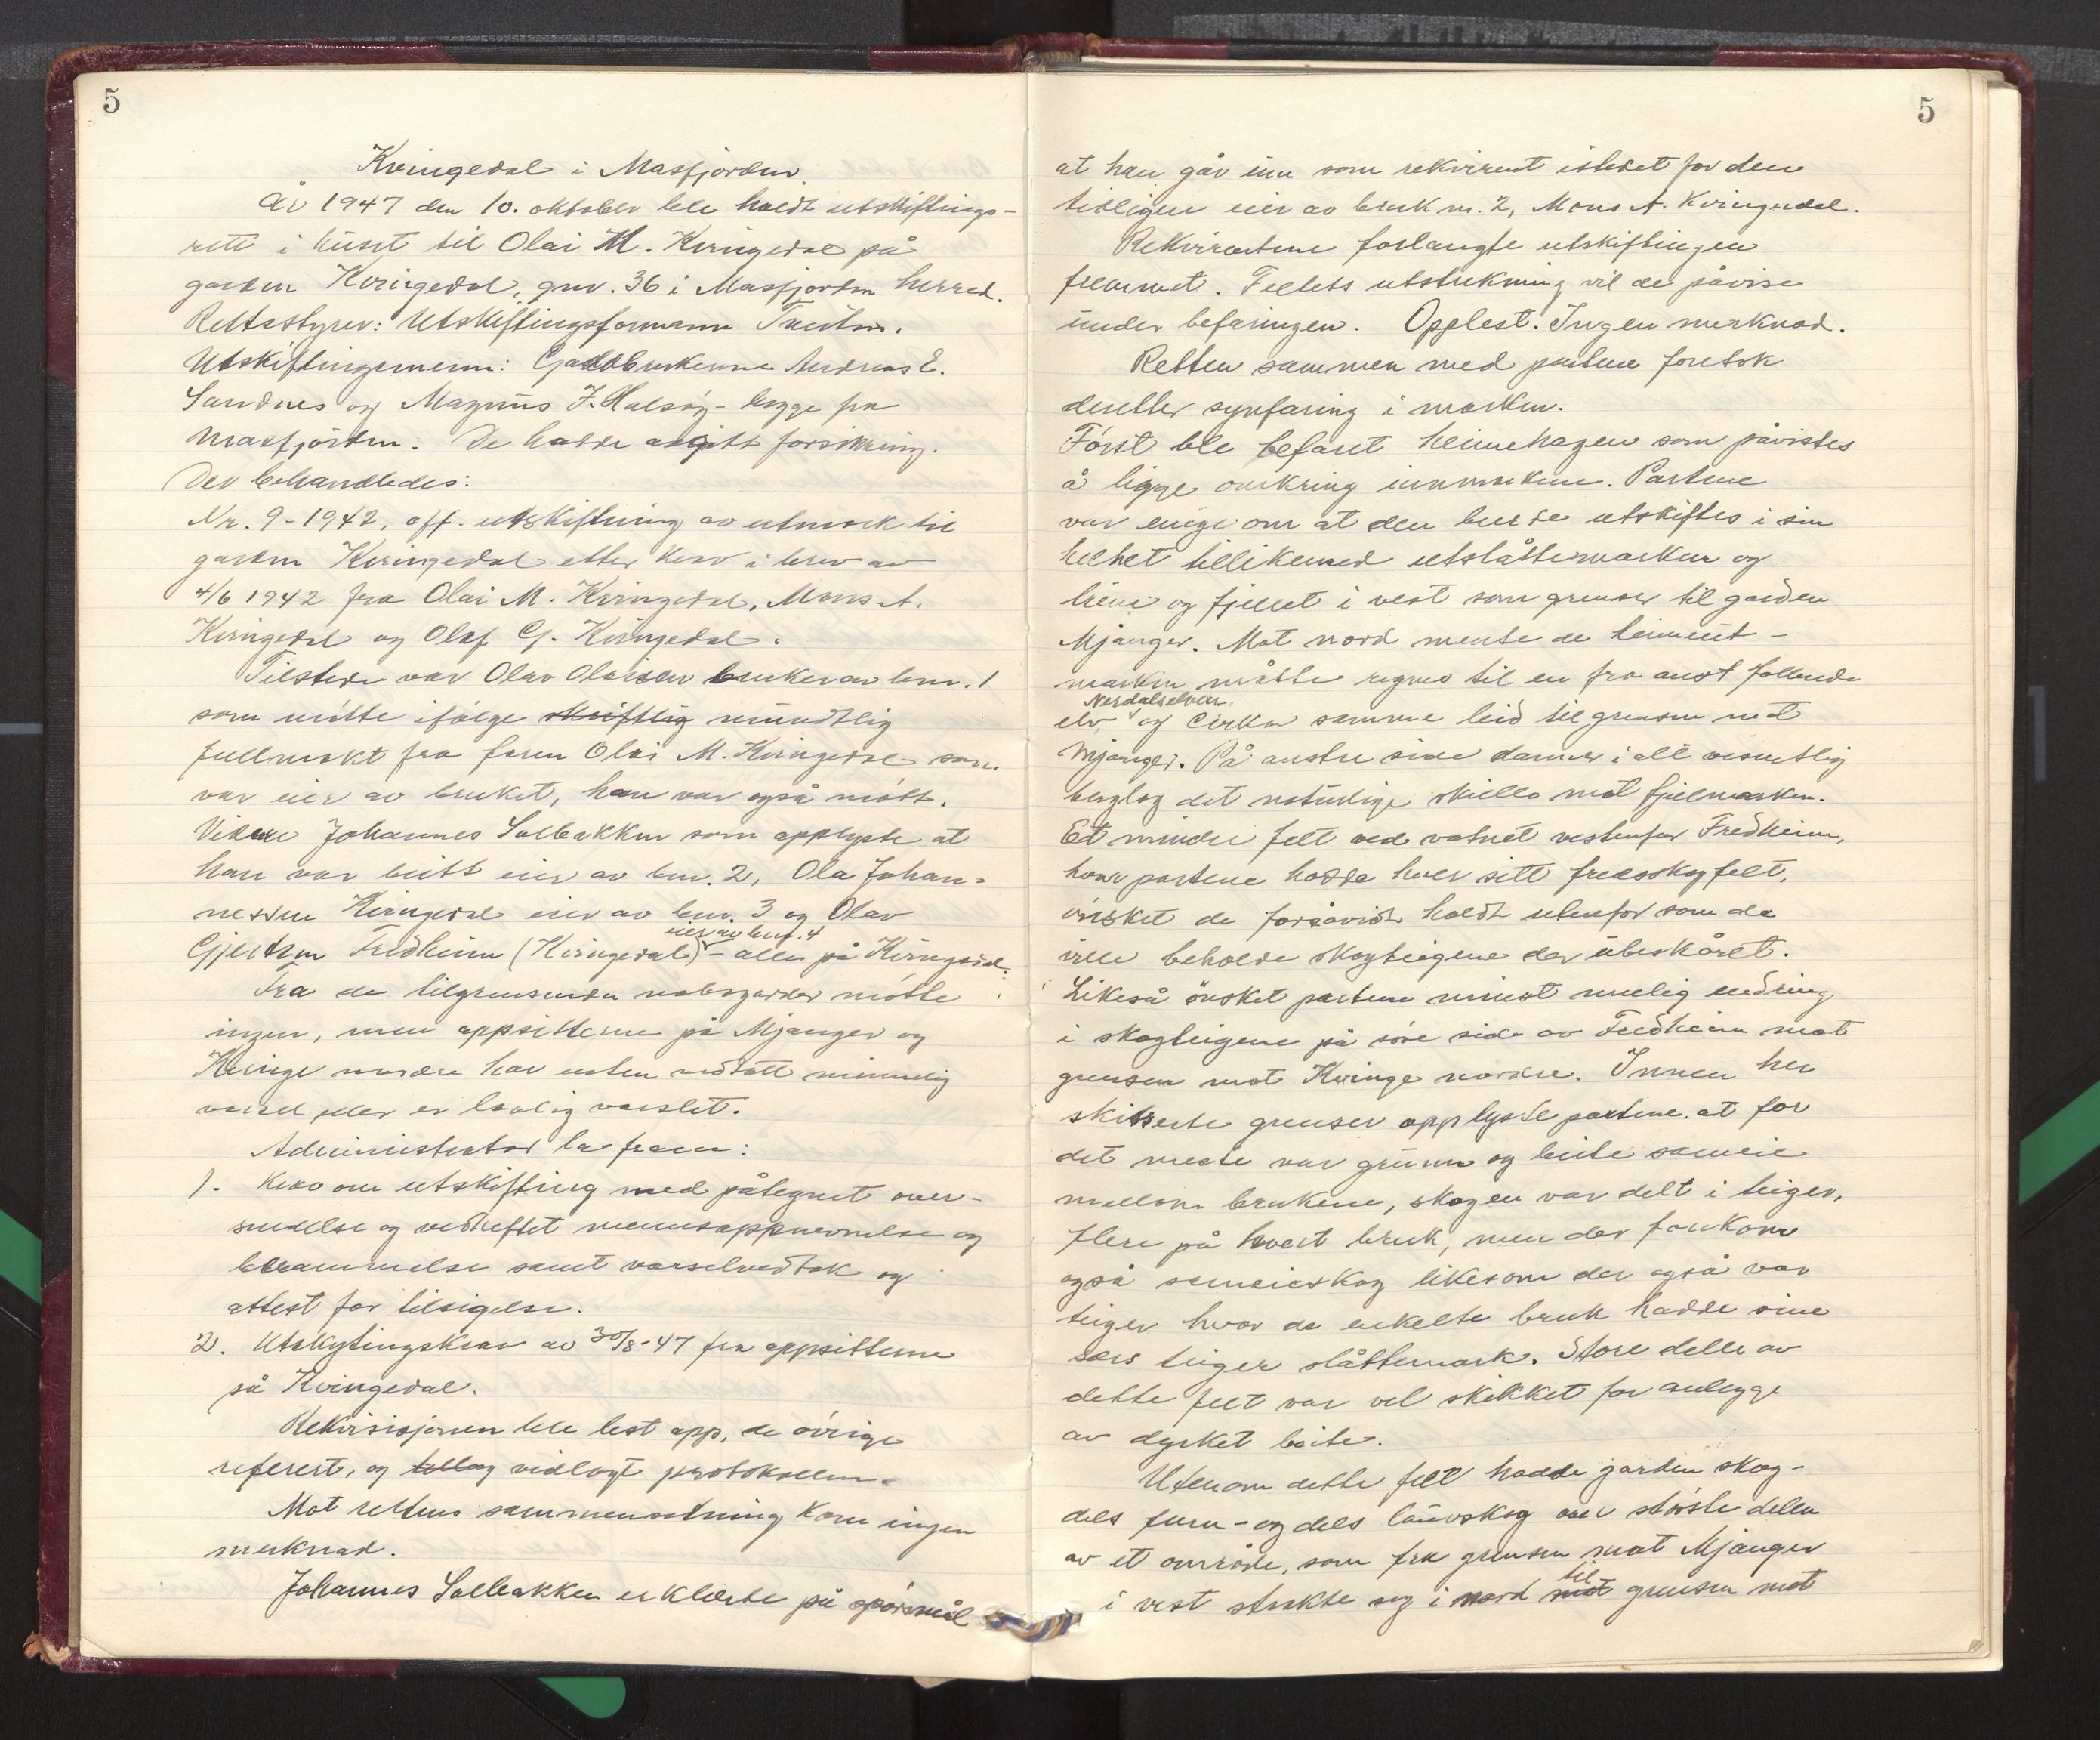 5
Kvingedal i Masfjorden.
År 1947 den 10. oktober ble holdt utskiftings-
rett i huset til Olai M. Kvingedal på
garden Kvingedal, gnr. 36 i Masfjorden herred.
Rettsstyrer: Utskiftingsformann
Utskiftingsmenn: Gardbrukerne Andreas E.
Sandnes og Magnus J. Halsøy - begge fra
Masfjorden. De hadde avgitt forsikring.
Der behandledes:
Nr. 9-1942, off. utskiftning av utmark til
garden Kvingedal etter krav i brev av
4/6 1942 fra Olai M. Kvingedal, Mons A.
Kvingedal og Olaf G. Kvingedal.
Tilstede var Olav Olaisen bruker av bnr. 1
som møtte ifølge skriftlig mundtlig
fullmakt fra faren Olai M. Kvingedal som
var eier av bruket, han var også møtt.
Videre Johannes Solbakken som opplyste at
han var blitt eier av bnr. 2, Ola Johan-
nessen Kvingedal eier av bnr. 3 og Olav
eier av bnr. 4
Gjertsen Fredheim (Kvingedal) - alle på Kvingedal.
Fra de tilgrensende nabogarder møtte
ingen, men oppsitterne på Mjanger og
Kvinge nordre har enten vedtatt minnelig
varsel eller er lovlig varslet.
Administrator la fram:
1. Krav om utskifting med påtegnet over-
sendelse og vedheftet mennsoppnevnelse og
berammelse samt varselvedtak og
attest for tilsigelse.
2. Utskytingskrav av 30/8-47 fra oppsitterne
på Kvingedal.
Rekvisisjonen ble lest opp, de øvrige
referert, og tillag vidlagt protokollen.
Mot rettens sammensetning kom ingen
merknad.
Johannes Solbakken erklærte på spørsmål
5
at han går inn som rekvirent istedet for den
tidligere eier av bruk nr. 2, Mons A. Kvingedal.
Rekvirentene forlangte utskiftingen
fremmet. Feltets utstrekning vil de påvise
under befaringen. Opplest. Ingen merknad.
Retten sammen med partene foretok
deretter synfaring i marken.
Først ble befaret heimehagen som påvistes
å ligge omkring innmarken. Partene
var enige om at den burde utskiftes i sin
helhet tillikemed utslåttemarken og
liene og fjellet i vest som grenser til garden
Mjanger. Mot nord mente de heimeut-
marken måtte regnes til en fra aust fallende
Nerdalselven
elv og cirka samme leid til grensen mot
Mjanger. På austre side danner i all vesentlig
berglag det naturlige skille mot fjellmarken.
Et mindre felt ved vatnet vestenfor Fredheim,
hvor partene hadde hver sitt fredskogfelt,
ønsket de forsåvidt holdt utenfor som de
ville beholde skogteigene der ubeskåret.
Likeså ønsket partene minst mulig endring
i skogteigene på søre side av Fredheim mot
grensen mot Kvinge nordre. Innen her
skisserte grenser opplyste partene at for
det meste var grunn og beite sameie
mellom brukene, skogen var delt i teiger,
flere på hvert bruk, men der forekom
også sameieskog likesom der også var
teiger hvor de enkelte bruk hadde sine
sers teiger slåttemark. Store deler av
dette felt var vel skikket for anlegge
av dyrket beite.
Utenom dette felt hadde garden skog-
dels furu- og dels lauvskog over største delen
av et område, som fra grensen mot Mjanger
til
i vest strakte seg i nord mot grensen mot